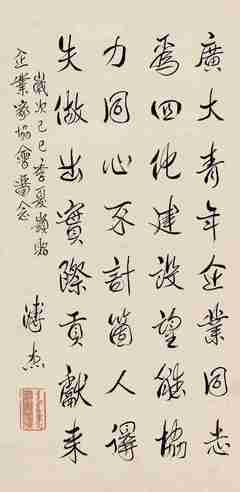 廣大青年企業同志
為四化建設望能協
力同心不計箇人得
失做出實際貢獻来
歲次己巳季夏獻贻
企業家協會留念
溥杰